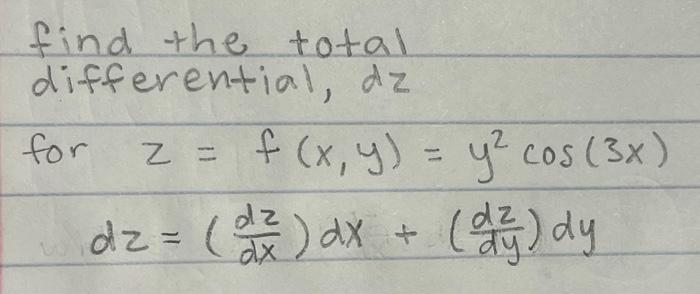 find the total
differential, dz
for z = f(x,y) = y² cos(3x)
dz = (dz/dx)dx + (dz/dy)dy